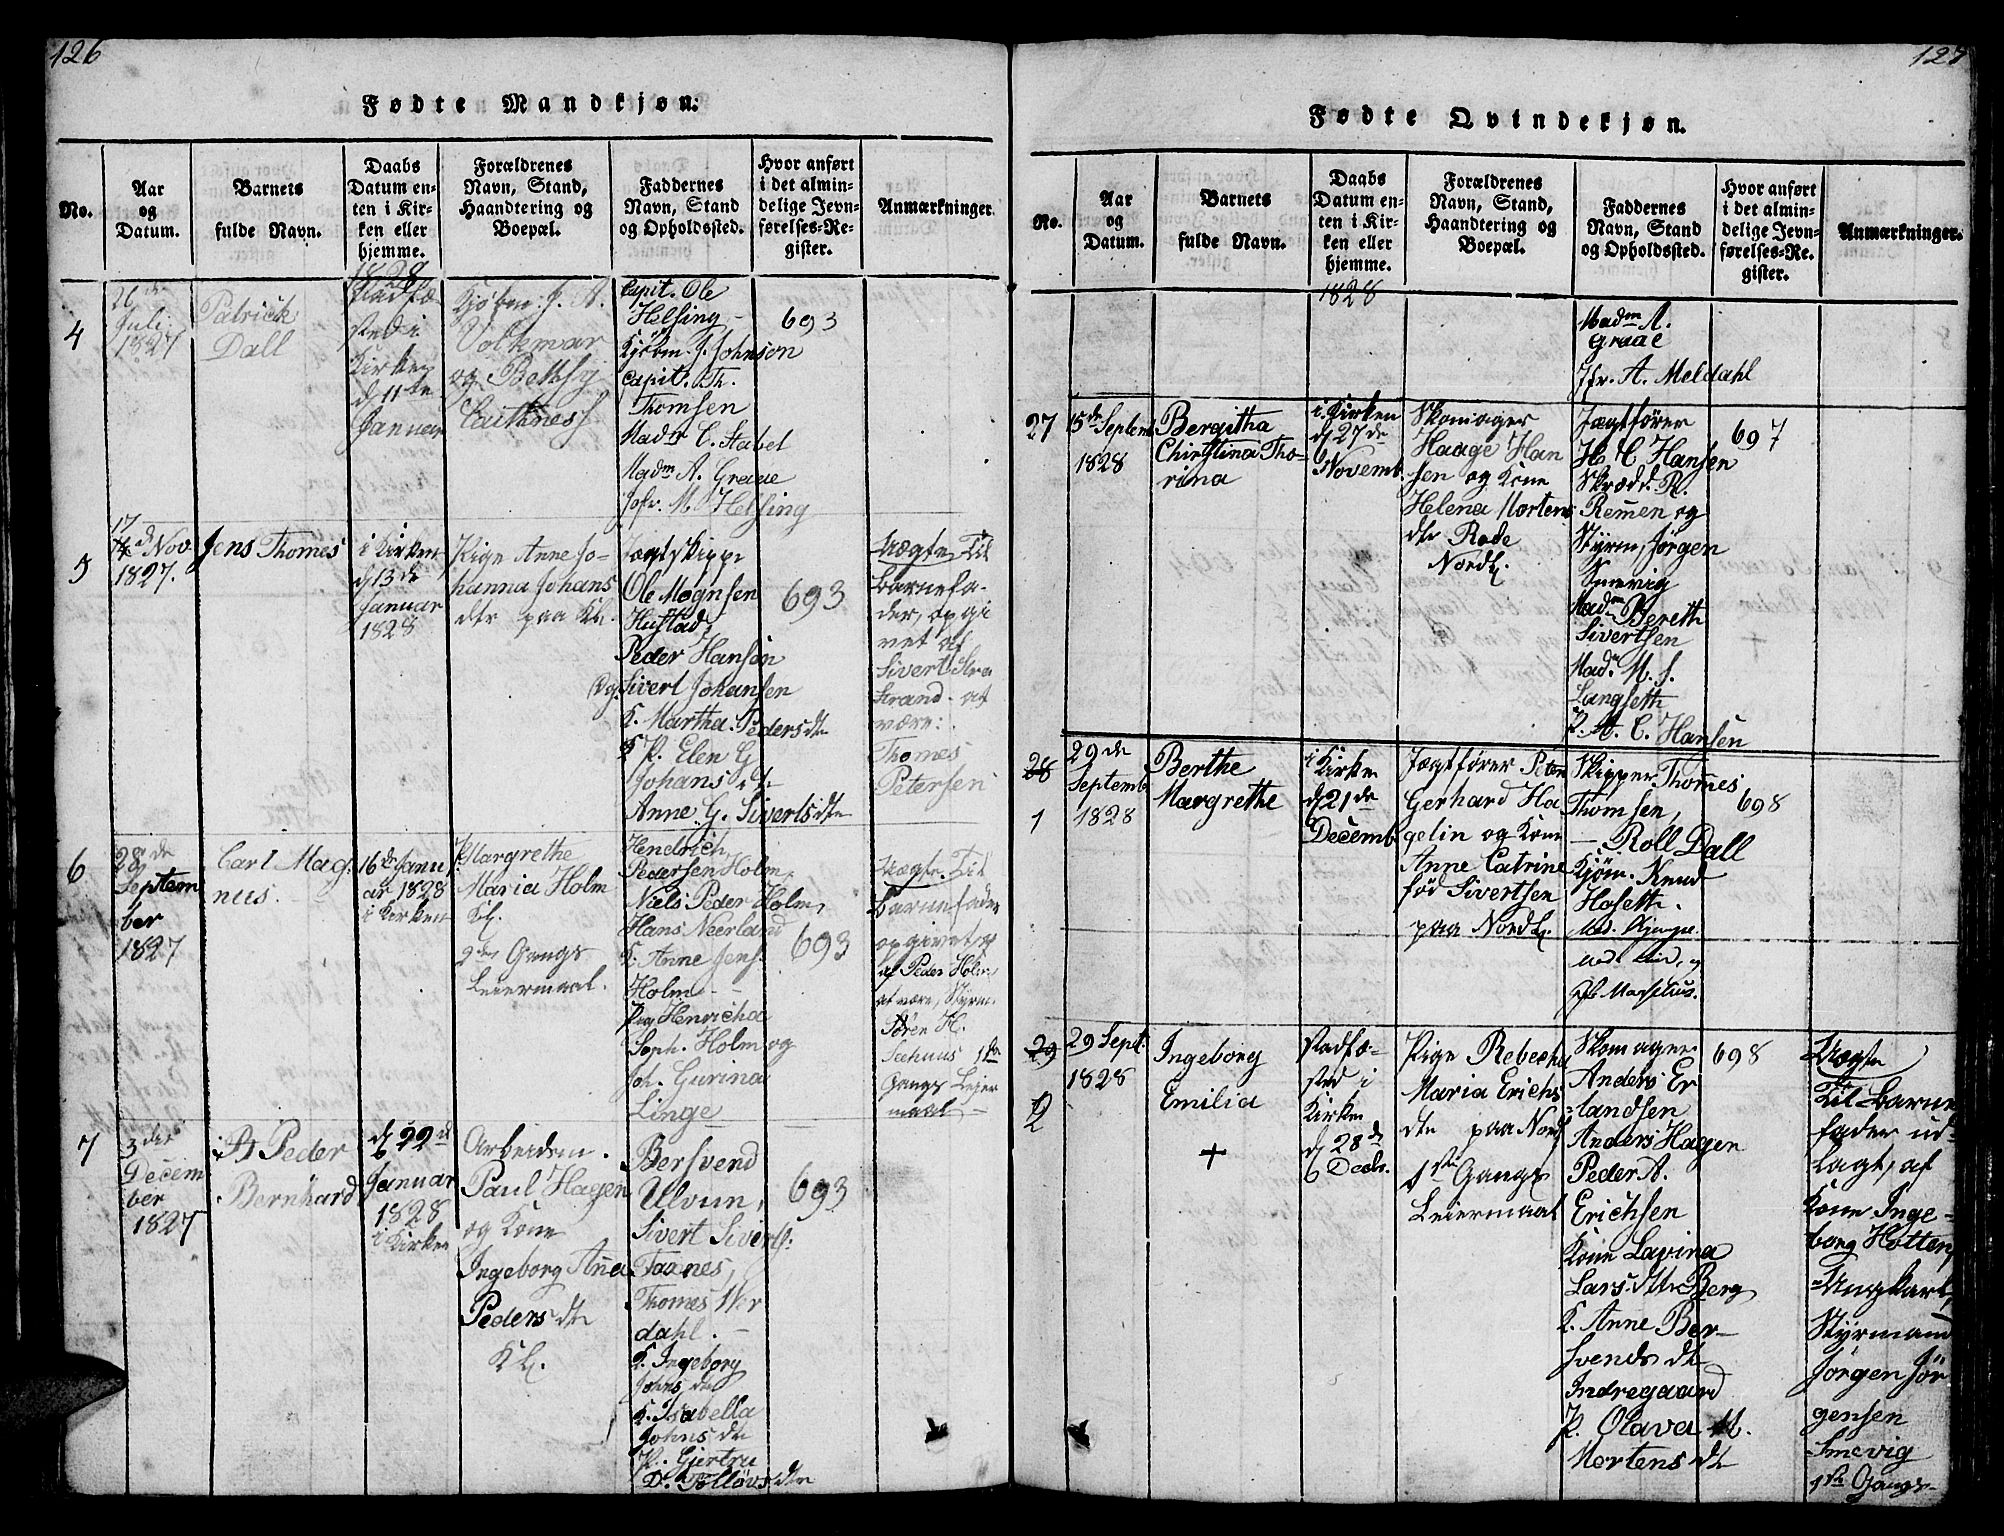 126
Fødte Mandkjøn.
No.
Aar
og
Datum.
Barnets
fulde Navn.
Daabs
Datum en-
ten i Kir-
ken eller
hjemme.
Forældrenes
Navn, Stand,
Haandtering og
Boepæl.
Faddernes
Navn, Stand
og Opholdssted.
Hvor anført
i det almin-
delige Jevn-
førelses-Re-
gister.
Anmærkninger.
4
26de
Juli
1827
Patrick
Dall
1828
Stadfæ
sted i
Kirken
d 11te
Januar
Kjøbm. J. A.
Volkmar
og Bethsy
Caithness
Capit. Ole
Helsing
Kjöbm. J. Johnson
Capit. Th.
Thomsen
Madm C. Stabel
Madm A. Graae
Jofr. M. Helsing
693
5
17
d Nov.
1827.
Jens Thomes
i Kirken
d 13de
Januar
1828
Pige Anne Jo-
hanna Johans
dtr paa Kl.
Jagtskippr
Ole Mognsen
Hustad,
Peder Hanson
og Sivert Johansen
K. Martha Peders dtr
P. Elen G
Johans dtr
Anne G. Siverts dtr
693
Uægte. Til
Barnefa-
der, opgi
vet af
Sivert Stra
Strand at
være:
Thomes
Petersen
6
28de
Septem
ber
1827
Carl Mag-
nus.
16de Janu
ar 1828
i Kirken
P. Margrethe
Maria Holm
Kl.
2den Gangs
Leiermaal.
Hendrich
Pedersen Holm,
Niels Peder Holm,
Hans Neerland
K. Anne Jens
Holm
Pig Henricha
Soph. Holm og
Joh. Gurina
Linge
693
Uægte. Til
Barnefader
opgivet
af Peder Holm
at være, Styrm.
Søren H.
1ste
Gangs Leier
maal
7
3die
Decem
ber
1827
Peder
Bernhard
d 22de
Januar
1828
i Kirken
Arbeidsm.
Paul Hagen
og Kone
Ingeborg Ana
Peders dtr
Kl.
Bersvend
Ulvun,
Sivert Siverts:
Faxnes,
Thomes Nor
dahl.
K. Ingeborg
Johns dtr
K. Isabella
Johns dtr
P. Gjertru
D. Tolløvs dtr
693
127
Fødte Qvindekjøn.
No.
Aar
og
Datum.
Barnets
fulde Navn.
Daabs
Datum en-
ten i Kir-
ken eller
hjemme.
Forældrenes
Navn, Stand,
Haandtering og
Boepæl.
Faddernes
Navn, Stand
og Opholdssted.
Hvor anført
i det almin-
delige Jevn-
førelses-Re-
gister.
Anmærkninger.
1828
Madm A.
Graae
Jfr. A. Meldahl
27
15de Septemb
1828
Bergitha
Christina Tho-
rina
i Kirken
d 27de
Novemb.
Skomager
Haage Han
sen og Kone
Helena Mortens
dtr Rode
Nordl.
Jægtfører
H. C. Hansen
Skrædd. R.
Remen og
Styrm. Jørgen
Smevig
Madm Bereth
Sivertsen
Madm M. S.
Langseth
P. A. C. Hansen
697
28
1
29de
Septemb
1828
Berthe
Margrethe
i Kirken
d 21de
Decemb.
Jægtfører Peter
Gerhard Ha
gelin og Kone
Anne Catrine
fød Sivertsen
paa Nordl.
Skipper Thomes
Thomsen,
— Roll Dall
Kjøm. Knud
Hoseth.
698
29
2
29 Sept.
1828
Ingeborg
Emilia
+
Stadfæ-
sted i
Kirken
d 28de
Decbr.
Pige Rebecka
Maria Erichs
dtr paa Nord
1ste Gangs
Leiermaal
Skomager
Anders Er
landsen
Anders Hagen
Peder A.
Erichsen
Kone Lavina
Lars. Berg
K. Anne Ber-
svends dtr
Indregaard
P. Olava M.
Mortens dtr
698
Uægte
Til Barne
fader ud-
lagt, af
Kone Inge-
borg Hotten,
Ungkarl,
Styrmand
Jørgen Jør
gensen
Smevig
1ste Gangs-